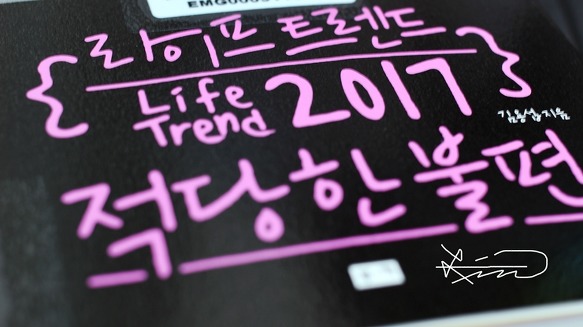 라이프 트렌드
Life
Trend
2017
김용섭 지음
적당한 불편